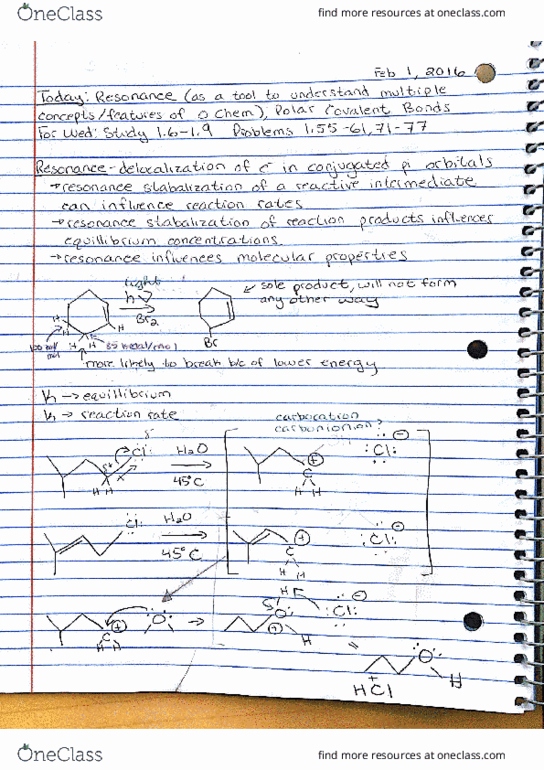 OneClass
find more resources at oneclass.com
Feb 1, 2016
Today: Resonance (as a tool to understand multiple
concepts/features of O Chem), Polar Covalent Bonds
For Wed: Study 1.6-1.9 Problems 1.55-61, 71-77
Resonance - delocalization of e⁻ in conjugated pi orbitals
→resonance stabalization of a reactive intermediate
can influence reaction rates
→resonance stabalization of reaction products influences
equillibrium concentrations.
→resonance influences molecular properties
light
hν
Br₂
H
H
H H
85 kcal/mol
Br
↙ sole product, will not form
any other way
more likely to break b/c of lower energy
→equillibrium
→ reaction rate
carbocation
carbunionion?
δ⁻
Cl:
δ+
H H
H₂O
45°C
⊕
C
H H
:Cl:
⊖
Cl:
H₂O
45°C
⊕
C
H H
:Cl:
⊖
C ⊕
H H
O
→
H
O:
⊕
H
:Cl:
⊖
O
H
+
HCl
OneClass
find more resources at oneclass.com